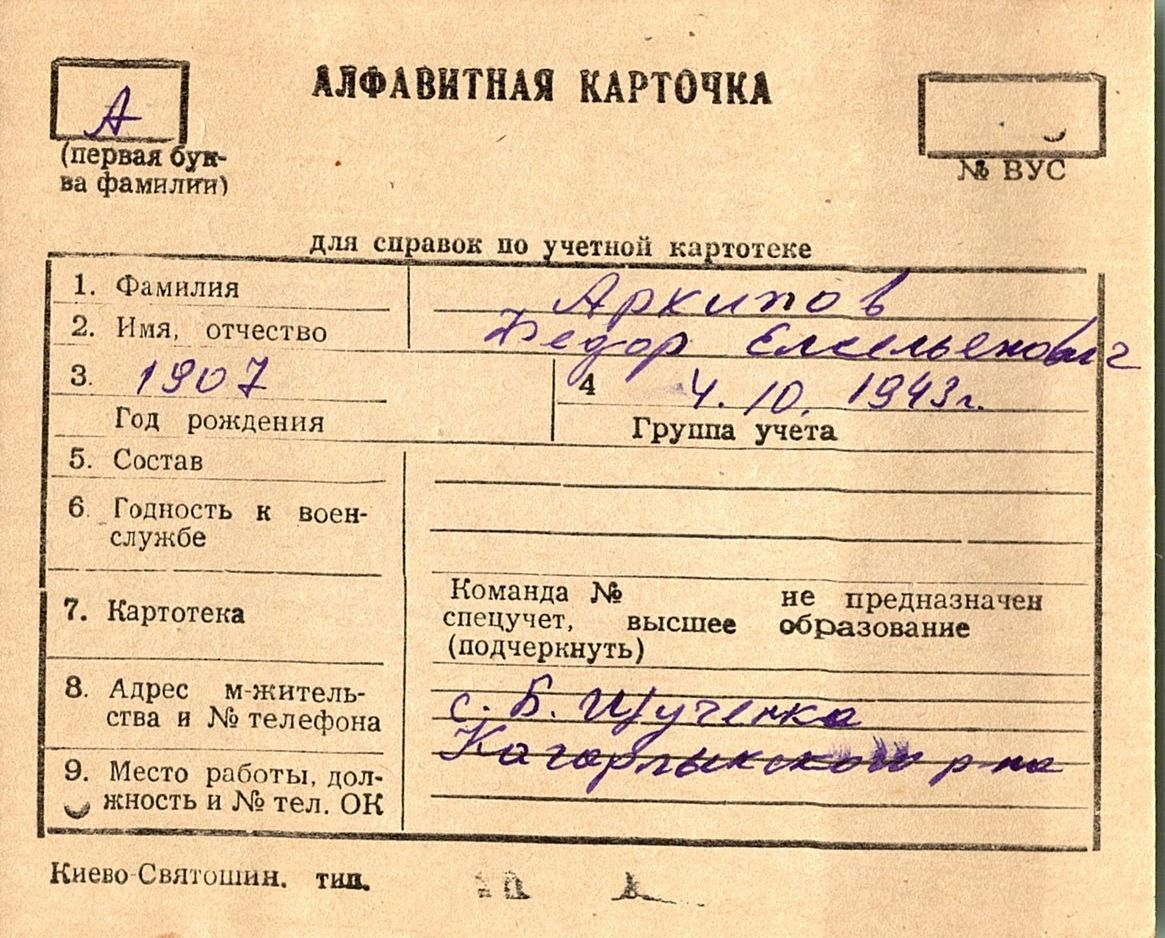 АЛФАВИТНАЯ КАРТОЧКА
А
(первая бук-
ва фамилии)
№ ВУС
для справок по учетной картотеке
1. Фамилия Архипов
2. Имя, отчество Федор Емельенович
3. 1907
Год рождения
4 4. 10. 1943г.
Группа учета
5. Состав
6. Годность к воен-
службе
7. Картотека
Команда № не предназначен
спецучет, высшее образование
(подчеркнуть)
8. Адрес м-житель-
ства и № телефона
с. Б. Щученка
Кагарлыкского р-на
9. Место работы, дол-
жность и № тел. ОК
Киево-Святошин. тип.